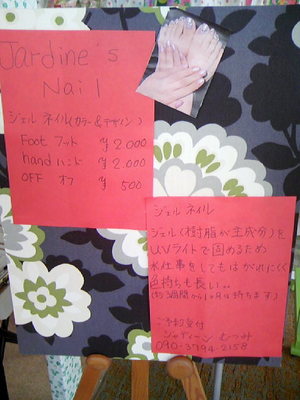 Jardine's
Nail
ジェル ネイル(カラー&デザイン)
Foot フット ¥2.000
hand ハンド ¥2.000
OFF オフ ¥500
ジェル ネイル
ジェル(樹脂が主成分)を
UVライトで固めるため
水仕事をしてもはがれにくく
色持ちも長い。
(約3週間から1ヶ月は持ちます)
ご予約受付
ジャディーン むつみ
090-3794-2158